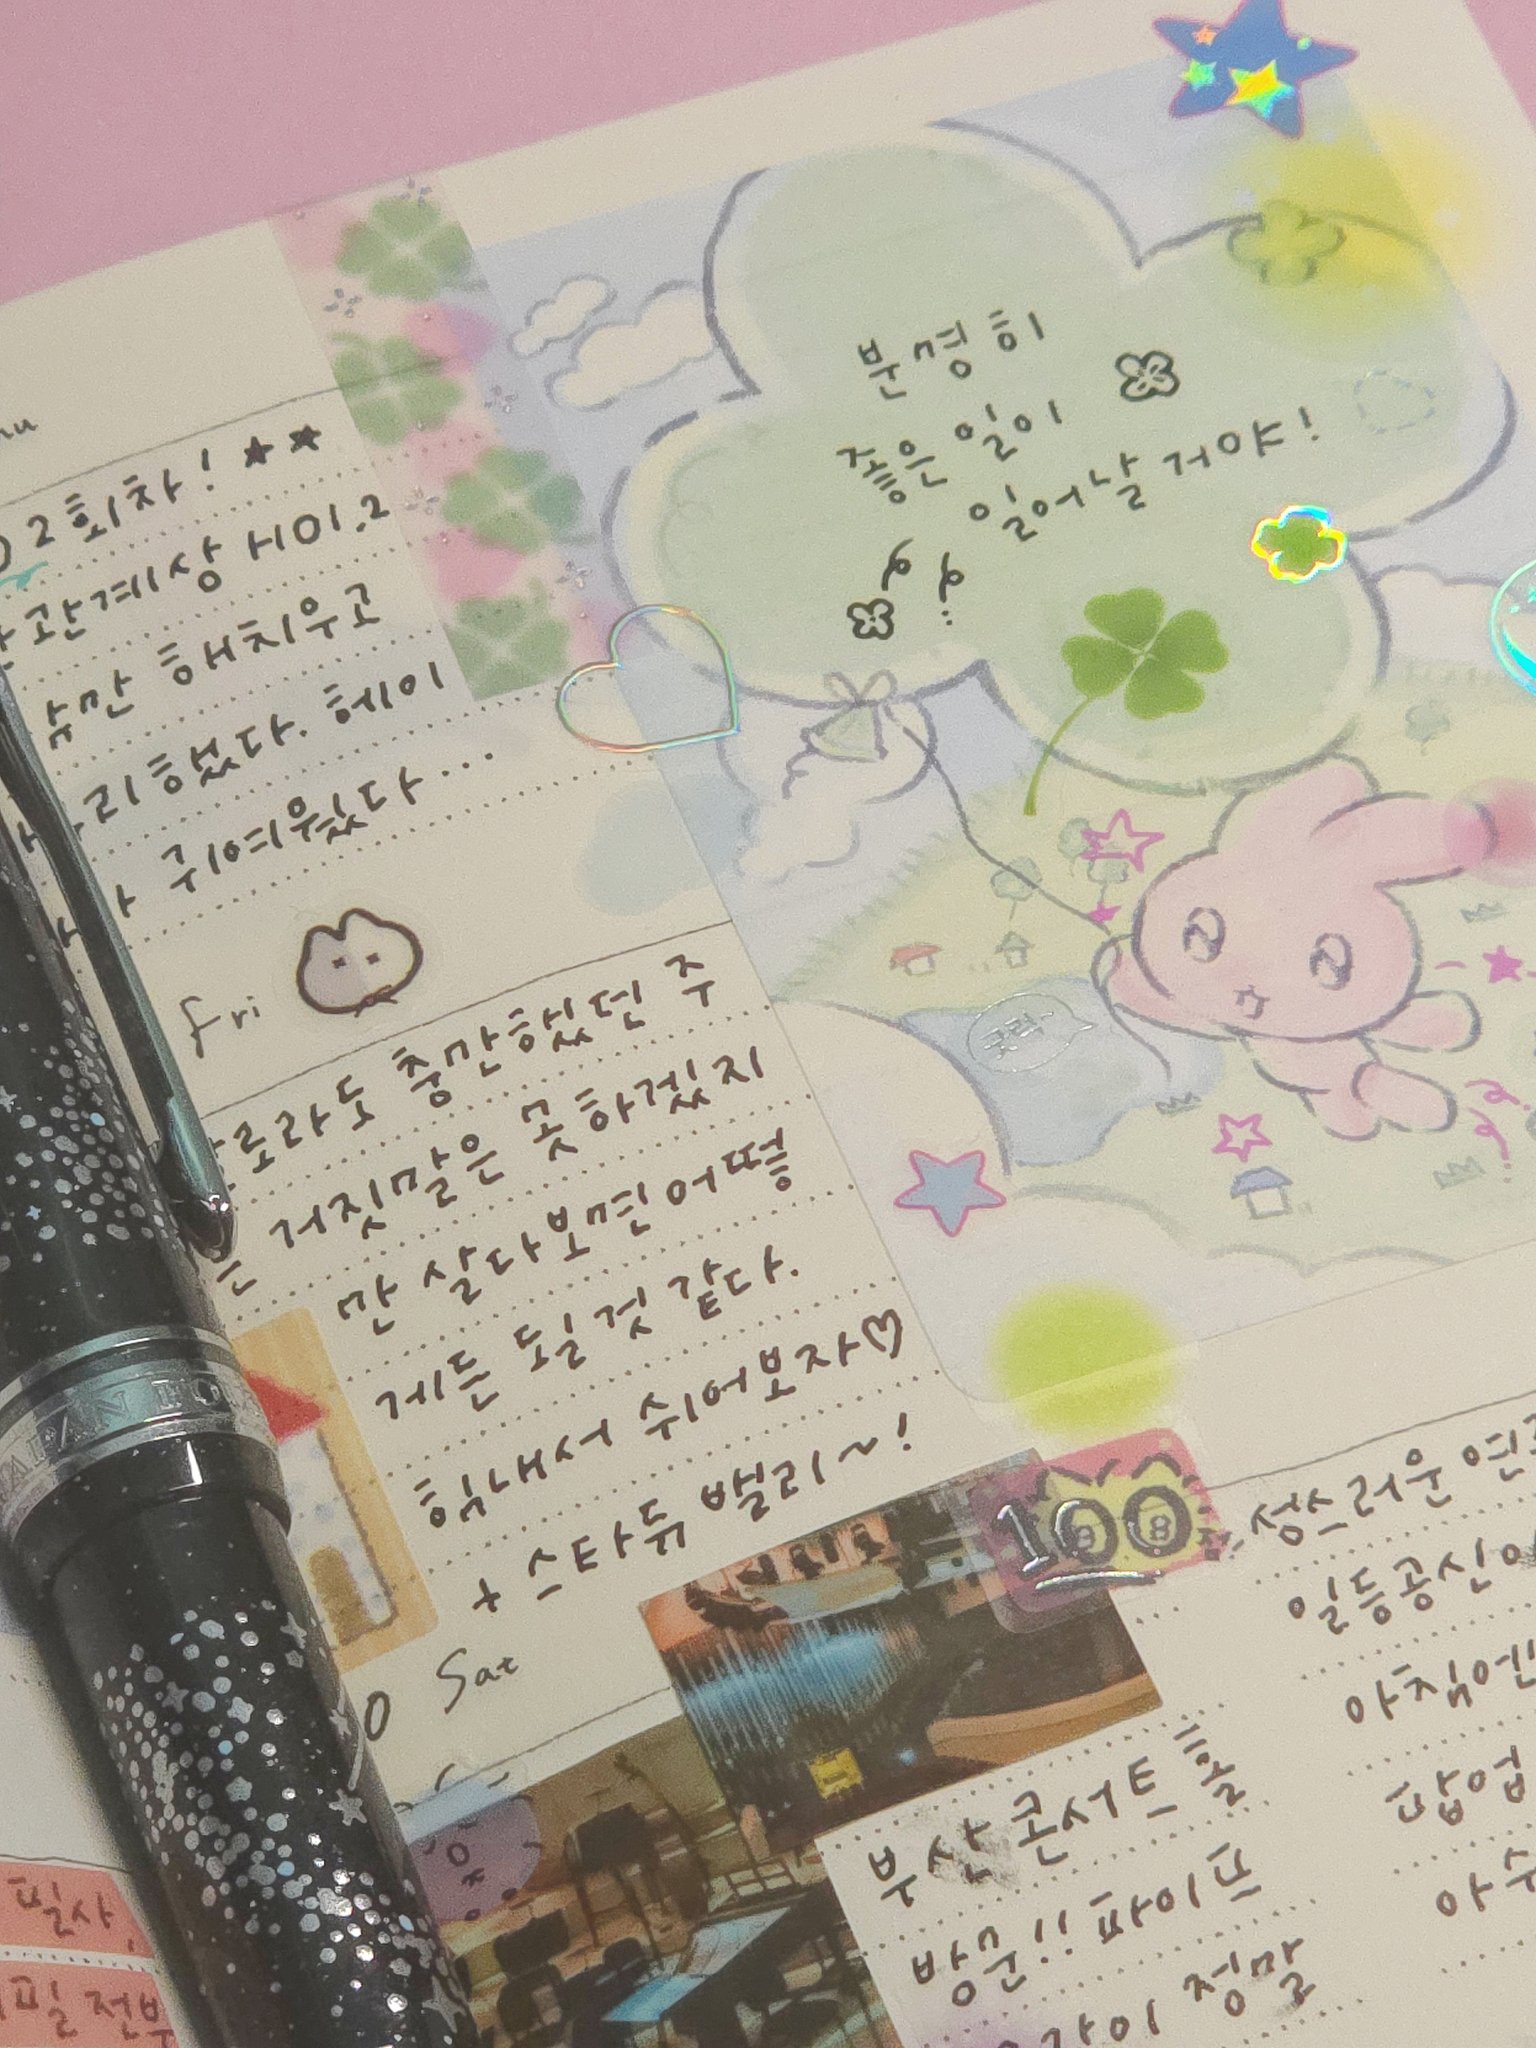 2회차! ★★
관계상 H01.2
만 해치우고
리했다. 헤이
귀여웠다...
fri
로라도 충만했던 주
거짓말은 못하겠지
만 살다보면 어떻
게든 될 것 같다.
힘내서 쉬어보자♡
+ 스타듀 밸리~!
Sat
분명히
좋은 일이
일어날 거야!
굿럭~
100
부산 콘서트 틈
방문!! 파이브
정말
성스러운
일등공신
아침엔
필사,
필 전부